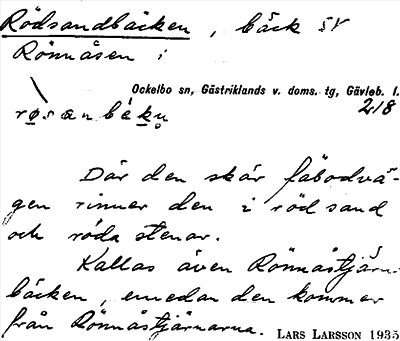 Rödsandbäcken, bäck SV
Rönnåsen i
Ockelbo sn, Gästriklands v. doms. tg, Gävleb. l.
218
røsanbékn̥
Där den skär fäbodvä-
gen rinner den i röd sand
och röda stenar.
Kallas även Rönnåstjärns-
bäcken, emedan den kommer
från Rönnåstjärnarna. LARS LARSSON 1935